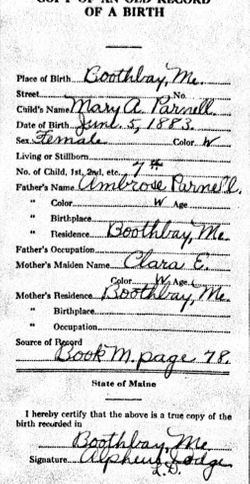 COPY OF AN OLD RECORD
OF A BIRTH
Place of Birth Boothbay, Me.
Street No.
Child's Name Mary A Parnell.
Date of Birth June 5, 1883.
Sex Female Color W
Living or Stillborn
No. of Child, 1st, 2nd, etc. 7th
Father's Name Ambrose Parnell.
" Color W Age
" Birthplace
" Residence Boothbay, Me.
Father's Occupation
Mother's Maiden Name Clara E.
Color W Age
Mother's Residence Boothbay, Me.
" Birthplace
" Occupation
Source of Record
Book M. page 78.
State of Maine
I hereby certify that the above is a true copy of the
birth recorded in
Boothbay, Me
Signature Alpheus Dodge